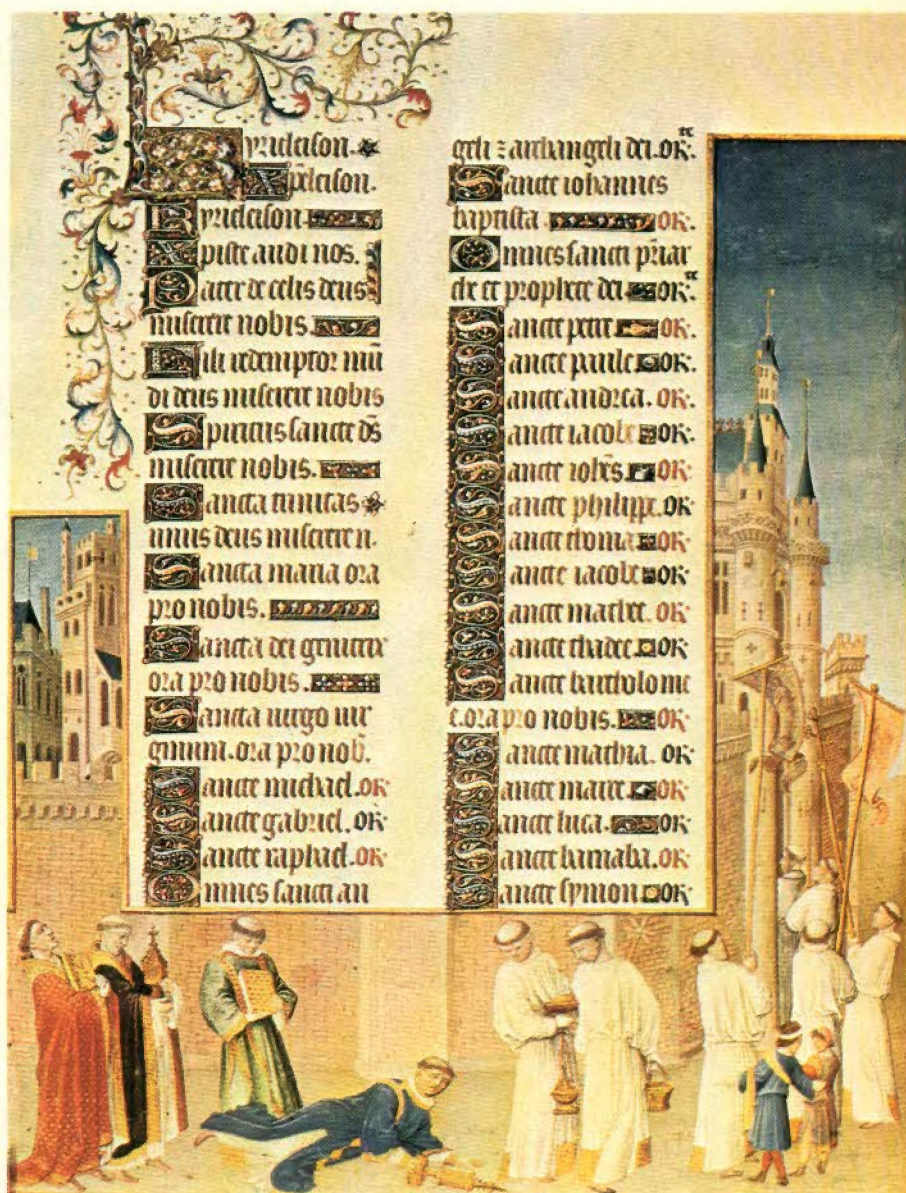 Kyrieleison.
Xp̄eleison.
Kyrieleison
Xpiste audi nos.
Pater de celis deus
miserere nobis.
Fili redemptor mū
di deus miserere nobis
Spiritus sancte ds̄
miserere nobis.
Sancta trinitas
unus deus miserere n.
Sancta maria ora
pro nobis.
Sancta dei genitrix
ora pro nobis.
Sancta virgo vir
ginum. ora pro nob̄.
Sancte michael. or̄
Sancte gabriel. or̄
Sancte raphael. or̄
Omnes sancti an
geli ⁊ archangeli dei. or̄.te
Sancte iohannes
baptista. or̄.
Omnes sancti pr̄iar
che et prophete dei or̄.te
Sancte petre or̄.
Sancte paule or̄.
Sancte andrea. or̄.
Sancte iacobe or̄.
Sancte ioh̄es. or̄
Sancte philippe. or̄
Sancte thoma or̄
Sancte iacobe or̄
Sancte mathee. or̄
Sancte thadee. or̄
Sancte bartholome
e. ora pro nobis. or̄
Sancte mathia. or̄
Sancte marce. or̄
Sancte luca. or̄
Sancte barnaba. or̄
Sancte symon or̄